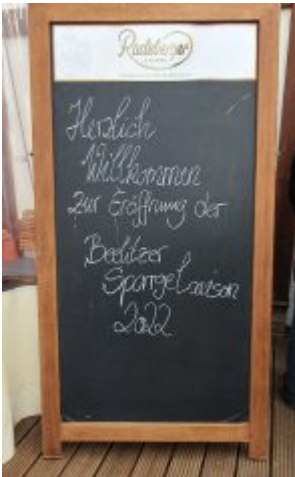 Radeberger
Herzlich
Willkommen
zur Eröffnung der
Beelitzer
Spargelsaison
2022